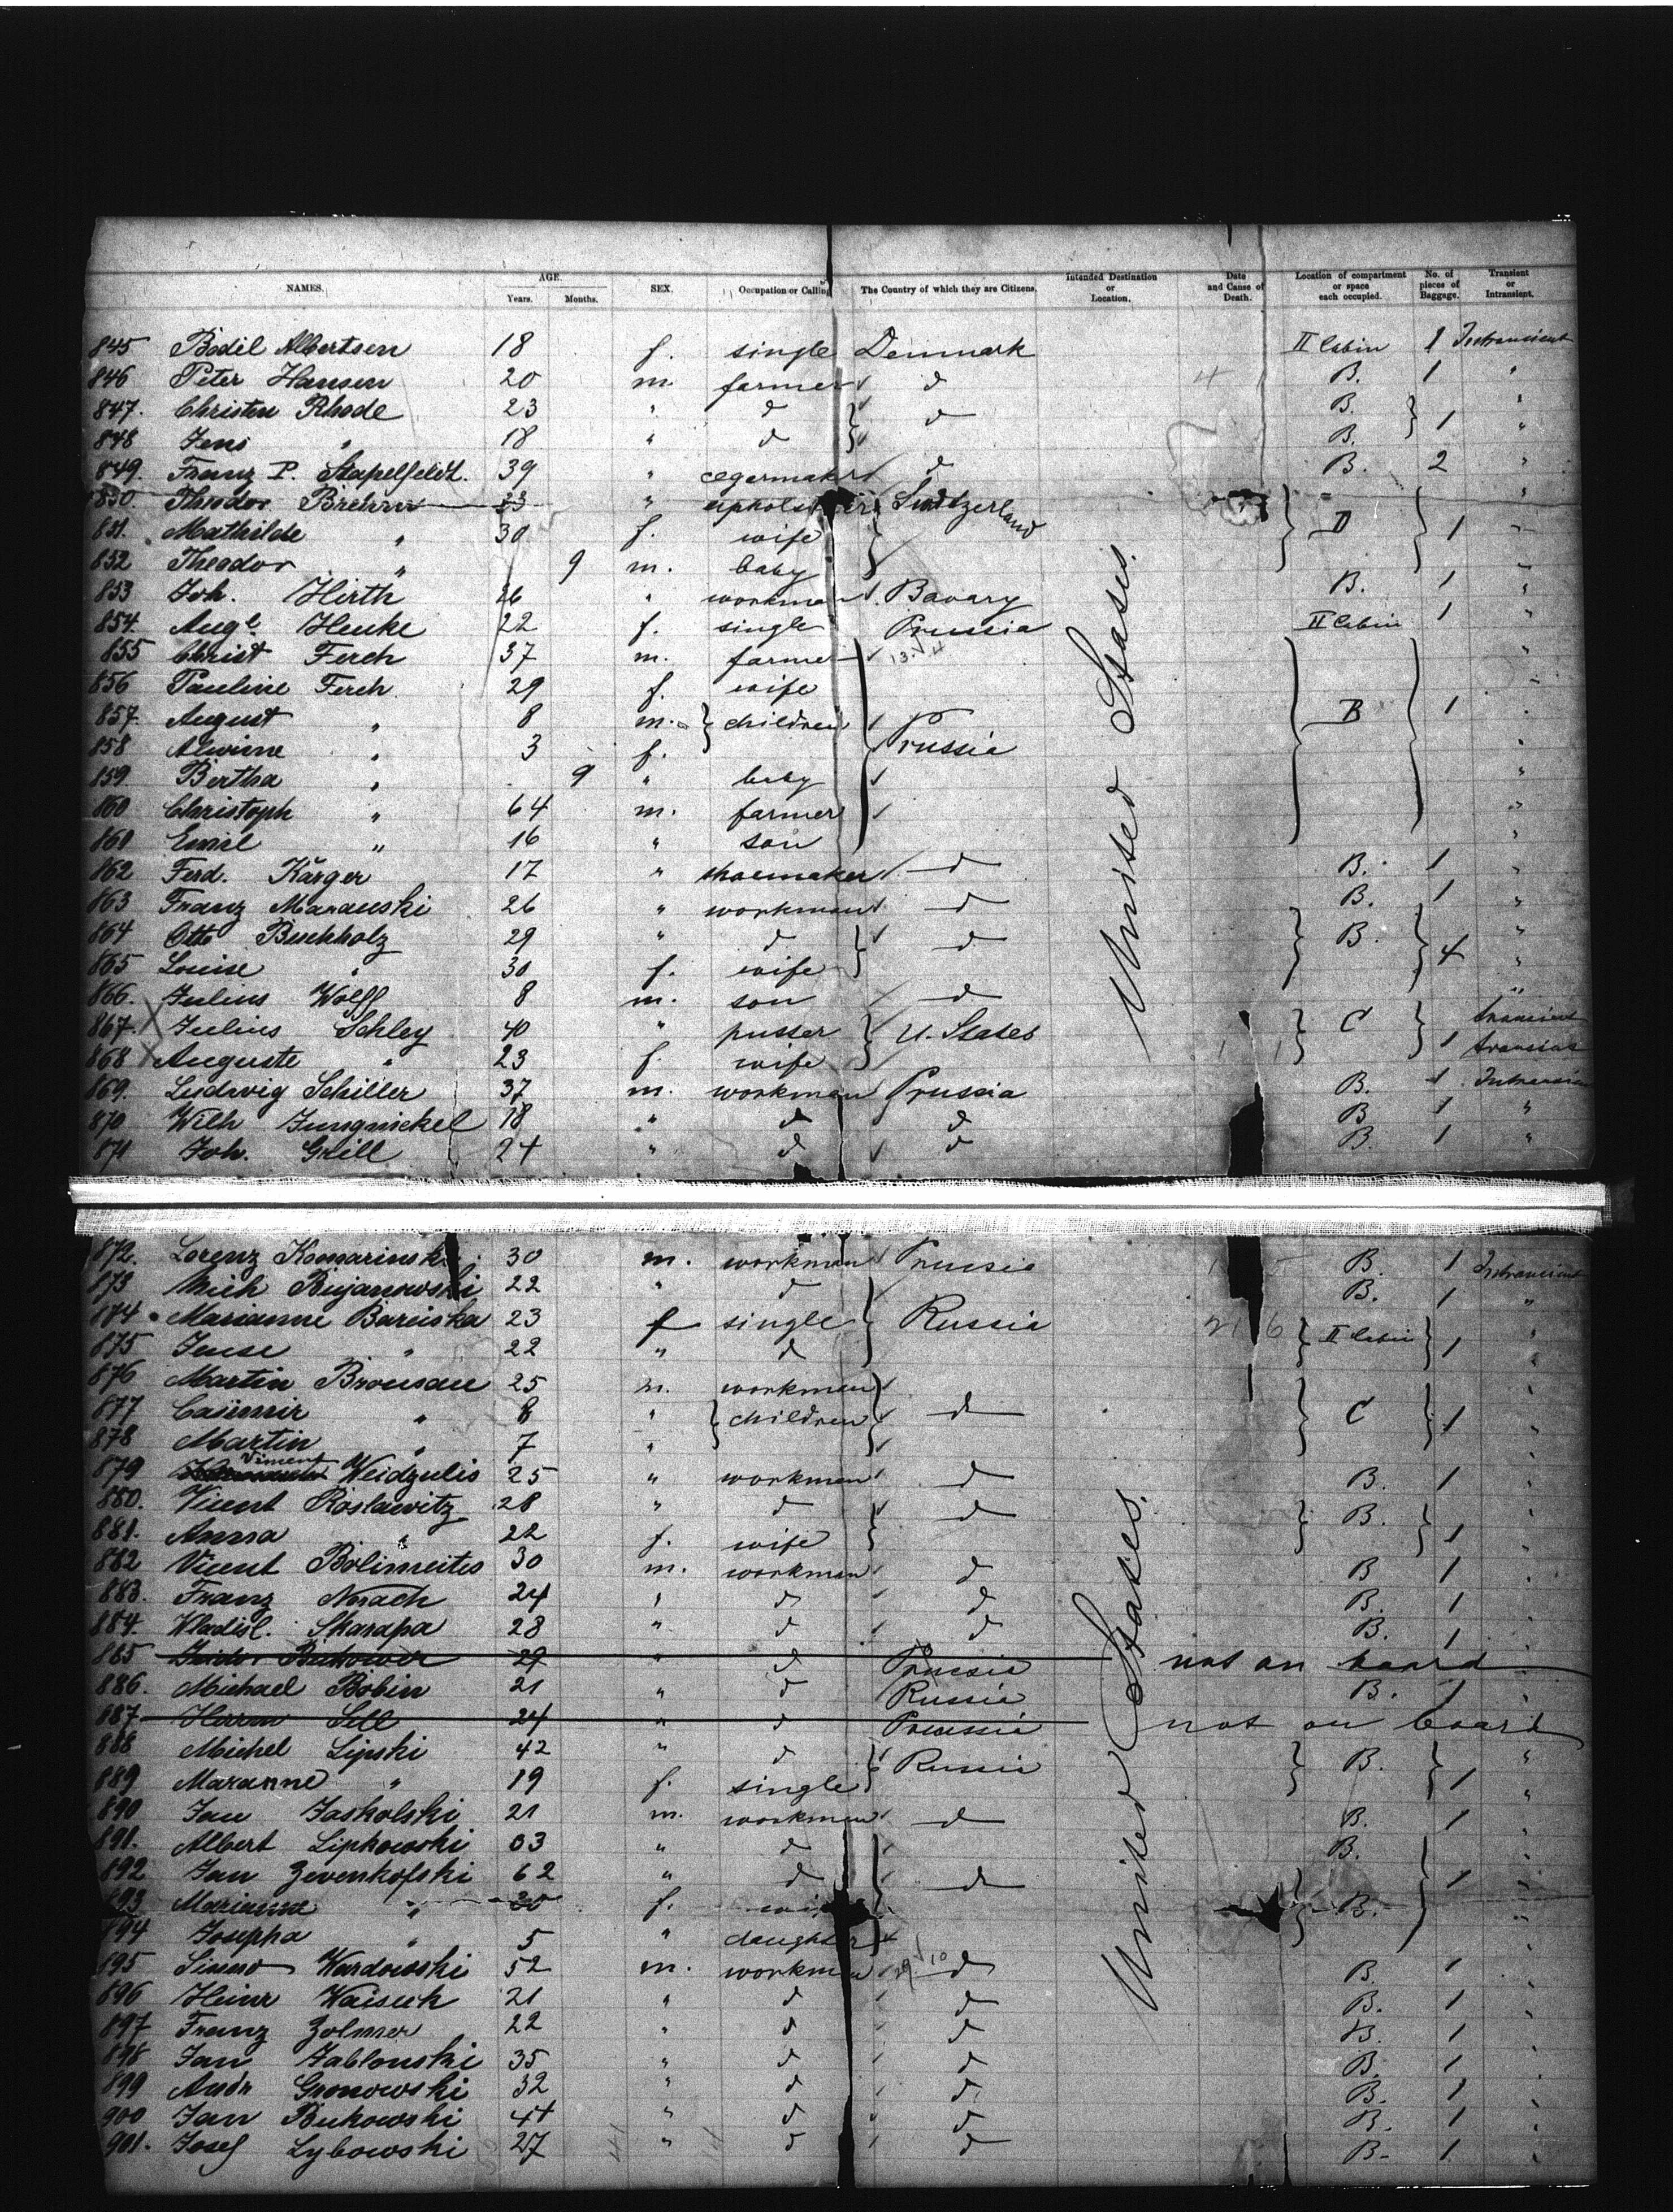 NAMES. AGE. Years. Months. SEX. Occupation or Calling The Country of which they are Citizens. Intended Destination or Location. Date and Cause of Death. Location of compartment or space each occupied. No. of pieces of Baggage. Transient or Intransient.
845 Bodil Albertsen 18 f. single Denmark II Cabin 1 Intransient
846 Peter Hansen 20 m. farmer d B. 1 "
847. Christen Rhode 23 " d d B. 1 "
848 Jens " 18 " d B. "
849. Franz P. Stapelfeldt. 39 " cegarmaker d B. 2 "
850. Theodor Brehm 23 " upholsterer Switzerland "
851. Mathilde " 30 f. wife D 1 "
852 Theodor " 9 m. baby "
853 Joh. Hirth 26 " workman Bavary B. 1 "
854. Auge. Henke 22 f. single Prussia II Cabin 1 "
855 Christ Ferch 37 m. farmer "
856 Pauline Ferch 29 f. wife "
857. August " 8 m. children Prussia B 1 "
858 Alwine " 3 f. "
859. Bertha " 9 " baby "
860 Christoph " 64 m. farmer "
861 Emil " 16 " son "
862 Ferd. Karger 17 " shoemaker d B. 1 "
863 Franz Maranski 26 " workman d B. 1 "
864 Otto Buchholz 29 " d d B. 4 "
865 Louise " 30 f. wife "
866. Julius Wolff 8 m. son d "
867. Julius Schley 40 " pusser U. States C 1 transient
868 Auguste " 23 f. wife transient
869. Ludwig Schiller 37 m. workman Prussia B. 1 Intransient
870 Wilh Jungnickel 18 " d d B 1 "
871 Joh. Grill 24 " d d B. 1 "
United States.
872. Lorenz Komarinski 30 m. workman Prussia B. 1 Intransient
873 Mich Bujanowski 22 " d B. 1 "
874 Marianne Bareiska 23 f single Russia II Cabin 1 "
875 " 22 " d "
876 Martin Brousau 25 m. workman "
877 Casimir " 8 " children d C 1 "
878 Martin " 7 " "
879 Vincent Weidzulis 25 " workman d B. 1 "
880. Vicent Roslawitz 28 " d d B. 1 "
881. Anna " 22 f. wife "
882 Vicent Bolimeites 30 m. workman d B 1 "
883. Franz Norach 24 " d d B. 1 "
884. Wladisl. Skarapa 28 " d d B. 1 "
885 29 " d Prussia not on board
886. Michael Bobin 21 " d Russia B. 1 "
887 Herm Sell 24 " d Prussia not on board
888 Michel Lipski 42 " d Russia B. 1 "
889 Maranne " 19 f. single "
890 Jan Jaskolski 21 m. workman d B. 1 "
891. Albert Lipkowski 63 " d B. "
892 Jan Zevenkofski 62 " d d 1 "
893 Marianne " 30 f. B. "
894 Josepha " 5 " daughter
895 Wardowski 52 m. workman d B. 1 "
896 Heinr Waisuh 21 " d d B. 1 "
897 Franz Zolmer 22 " d d B. 1 "
898 Jan Jablonski 35 " d d B. 1 "
899 Andr Gronowski 32 " d d B. 1 "
900 Jan Bukowski 44 " d d B. 1 "
901. Josef Lybowski 27 " d d B. 1 "
United States.